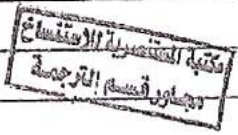 مكتبة المنتصرية للاستنساخ
مجاور قسم الترجمة